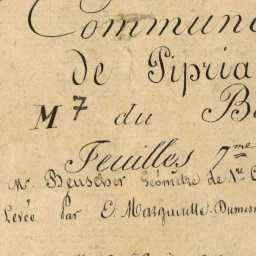 Commun
de Pipria
M 7 du B
Feuilles 7me
Mr. Beuscher Géomètre de 1re C
Levée par E. Marqueritte-Dumesn